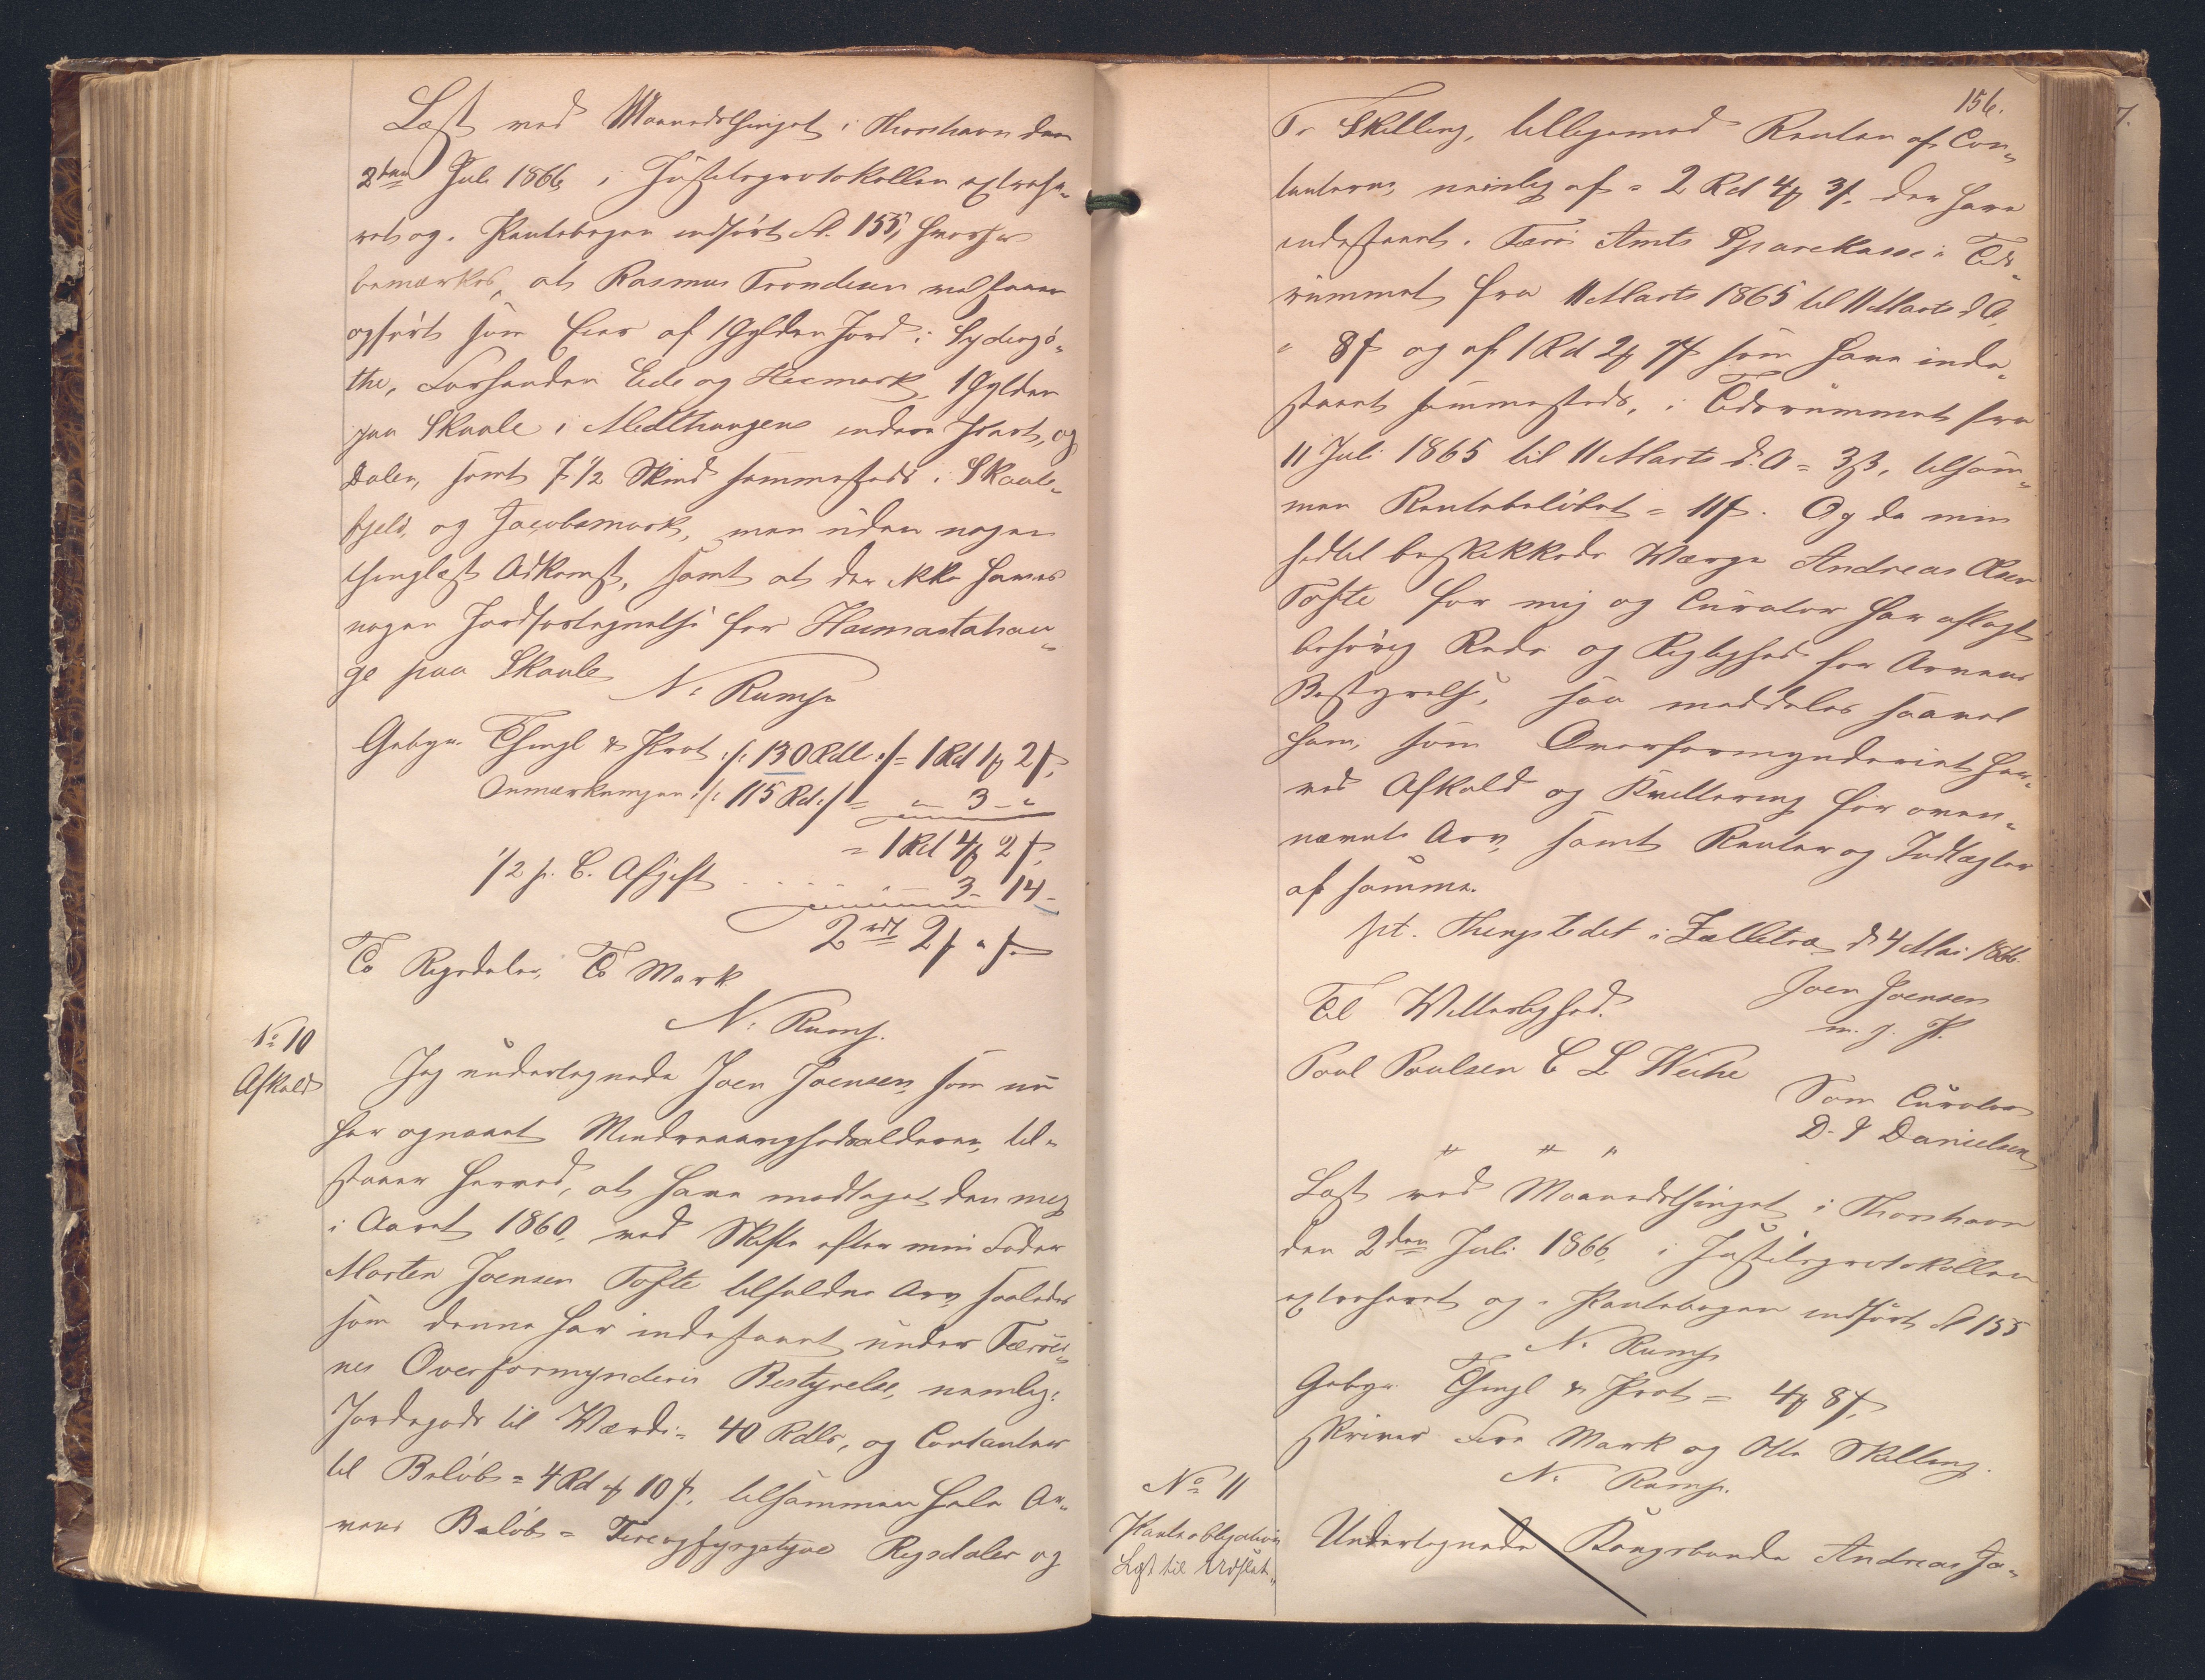 Læst ved Maanedsthinget i Thorshavn den
2den Juli 1866, i Justitsprotokollen extrahe-
ret og i Pantebogen indført fol. 155, hvorhos
bemærkes, at Rasmus Trondesen vel staaer
opført som Eier af 1 Gylden Jord i Sydergö-
the, Forhenden Eide og Heemark, 1 Gylden
paa Skaale i Midthaugens indere Part, og
Dalen, samt 7 1/2 Skind sammesteds i Skaale-
fjeld, og Jacobsmark, men uden nogen
thinglæst Adkomst, samt at der ikke haves
nogen Jordfortegnelse for Hamastahau-
ge paa Skaale
N: Rump
Gebyr. Thingl & Prot :/: 130 Rdl :/: = 1 Rd 1 ₻ 2 ß.
Anmærkningen :/: 115 Rd :/: = " - 3 - "
= 1 Rd 4 ₻ 2 ß.
1/2 p. C. Afgift . . . . . 3 - 14 -
2 rdl 2 ₻ " ß.
To Rigsdaler, To Mark
N: Rump.
No 10
Afkald
Jeg undertegnede Joen Joensen, som nu
har opnaaet Mindreaarighedsalderen, til-
staaer herved, at have modtaget den mig
i Aaret 1860, ved Skifte efter min Fader
Morten Joensen Tofte tilfaldne Arv, saaledes
som denne har indestaaet under Færöer-
nes Overformynderis Bestyrelse, nemlig:
Jordegods til Værdi = 40 Rdlr, og Contanter
til Beløb = 4 Rd " ₻ 10 ß, tilsammen hele Ar-
vens Beløb = Fireogfyrgetyve Rigsdaler og
156.
Ti Skilling, tilligemed Renten af Con-
tanterne, nemlig af = 2 Rd 4 ₻ 3 ß. der have
indestaaet i Færö Amts Sparekasse i Tids-
rummet fra 11 Marts 1865 til 11 Marts d. A,
= 8 ß og af 1 Rd 2 ₻ 7 ß som have inde-
staaet sammesteds, i Tidsrummet fra
11 Juli 1865 til 11 Marts d. A = 3 ß, tilsam-
men Rentebeløbet = 11 ß. Og da min
hidtil beskikkede Værge Andreas Olsen
Tofte for mig og Curator har aflagt
behørig Rede og Rigtighed for Arvens
Bestyrelse, saa meddeles saavel
ham, som Overformynderiet her-
ved Afkald og Kvittering for oven-
nævnte Arv, samt Renter og Indtægter
af samme.
pt. Thingstedet i Zelletræ, d 4 Mai 1866.
Joen Joensen
m. f. P.
Til Vitterlighed.
Poul Poulsen C L Weihe
Som Curator
D. I Danielsen
" " "
Læst ved Maanedsthinget i Thorshavn
den 2den Juli 1866, i Justitsprotokollen
extraheret og i Pantebogen indført fol 155
N. Rump
Gebyr. Thingl & Prot = 4 ₻ 8 ß.
skriver Fire Mark og Otte Skilling.
N. Rump.
No 11
Panteobligation
Læst til Udslet-
Undertegnede Kongsbonde Andreas Jo-